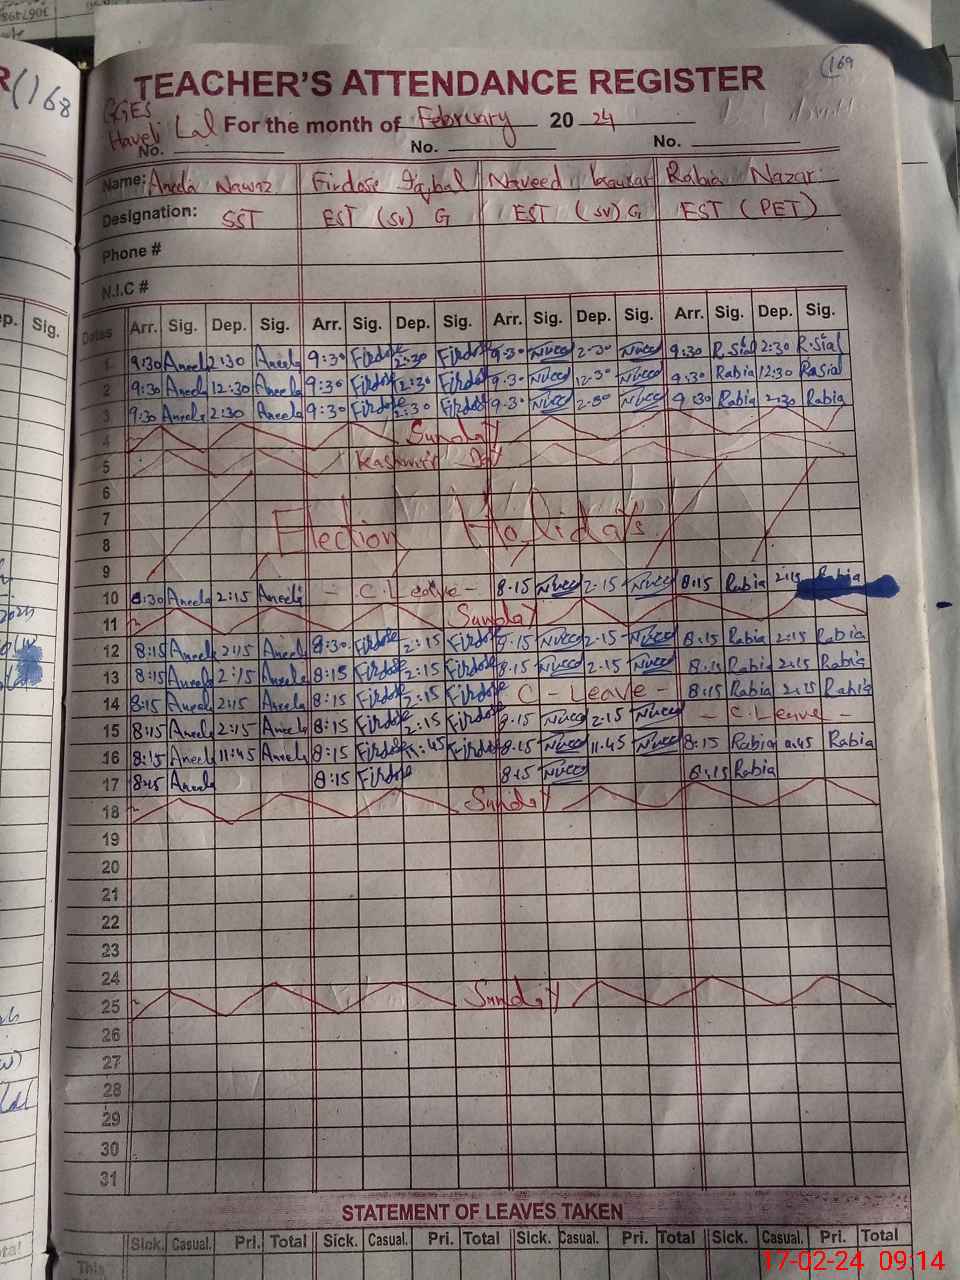 168
169
TEACHER'S ATTENDANCE REGISTER
GGES
Haveli Lal For the month of February 20 24
No. No. No.
Name: Aneela Nawaz Firdose Iqbal Naveed Kausar Rabia Nazar
Designation: SST EST (SV) G EST (SV) G EST (PET)
Phone #
N.I.C #
Sig.
Dates Arr. Sig. Dep. Sig. Arr. Sig. Dep. Sig. Arr. Sig. Dep. Sig. Arr. Sig. Dep. Sig.
1 9:30 Aneela 2:30 Aneela 9:30 Firdose 2:30 Firdose 9-30 2-30 9:30 R.Sial 2:30 R.Sial
2 9:30 Aneela 12:30 Aneela 9:30 Firdose 12:30 Firdose 9-30 12-30 9:30 Rabia 12:30 Rasial
3 9:30 Aneela 2:30 Aneela 9:30 Firdose 2:30 Firdose 9-30 2-30 9:30 Rabia 2:30 Rabia
4 Sunday
5 Kashmir Day
6
7 Election Holidays
8
9
10 8:30 Aneela 2:15 Aneela - C. Leave - 8-15 2-15 8:15 Rabia 2:15 Rabia
11 Sunday
12 8:15 Aneela 2:15 Aneela 8:30 Firdose 2:15 Firdose 8-15 2-15 8:15 Rabia 2:15 Rabia
13 8:15 Aneela 2:15 Aneela 8:15 Firdose 2:15 Firdose 8-15 2-15 8:15 Rabia 2:15 Rabia
14 8:15 Aneela 2:15 Aneela 8:15 Firdose 2:15 Firdose C - Leave - 8:15 Rabia 2:15 Rabia
15 8:15 Aneela 2:15 Aneela 8:15 Firdose 2:15 Firdose 8-15 2-15 - C. Leave -
16 8:15 Aneela 11:45 Aneela 8:15 Firdose 11:45 Firdose 8-15 11.45 8:15 Rabia 11.45 Rabia
17 8:15 Aneela 8:15 Firdose 8-15 8:15 Rabia
18 Sunday
19
20
21
22
23
24
25 Sunday
26
27
28
29
30
31
STATEMENT OF LEAVES TAKEN
Sick. Casual. Pri. Total Sick. Casual. Pri. Total Sick. Casual. Pri. Total Sick. Casual. Pri. Total
This
17-02-24 09:14